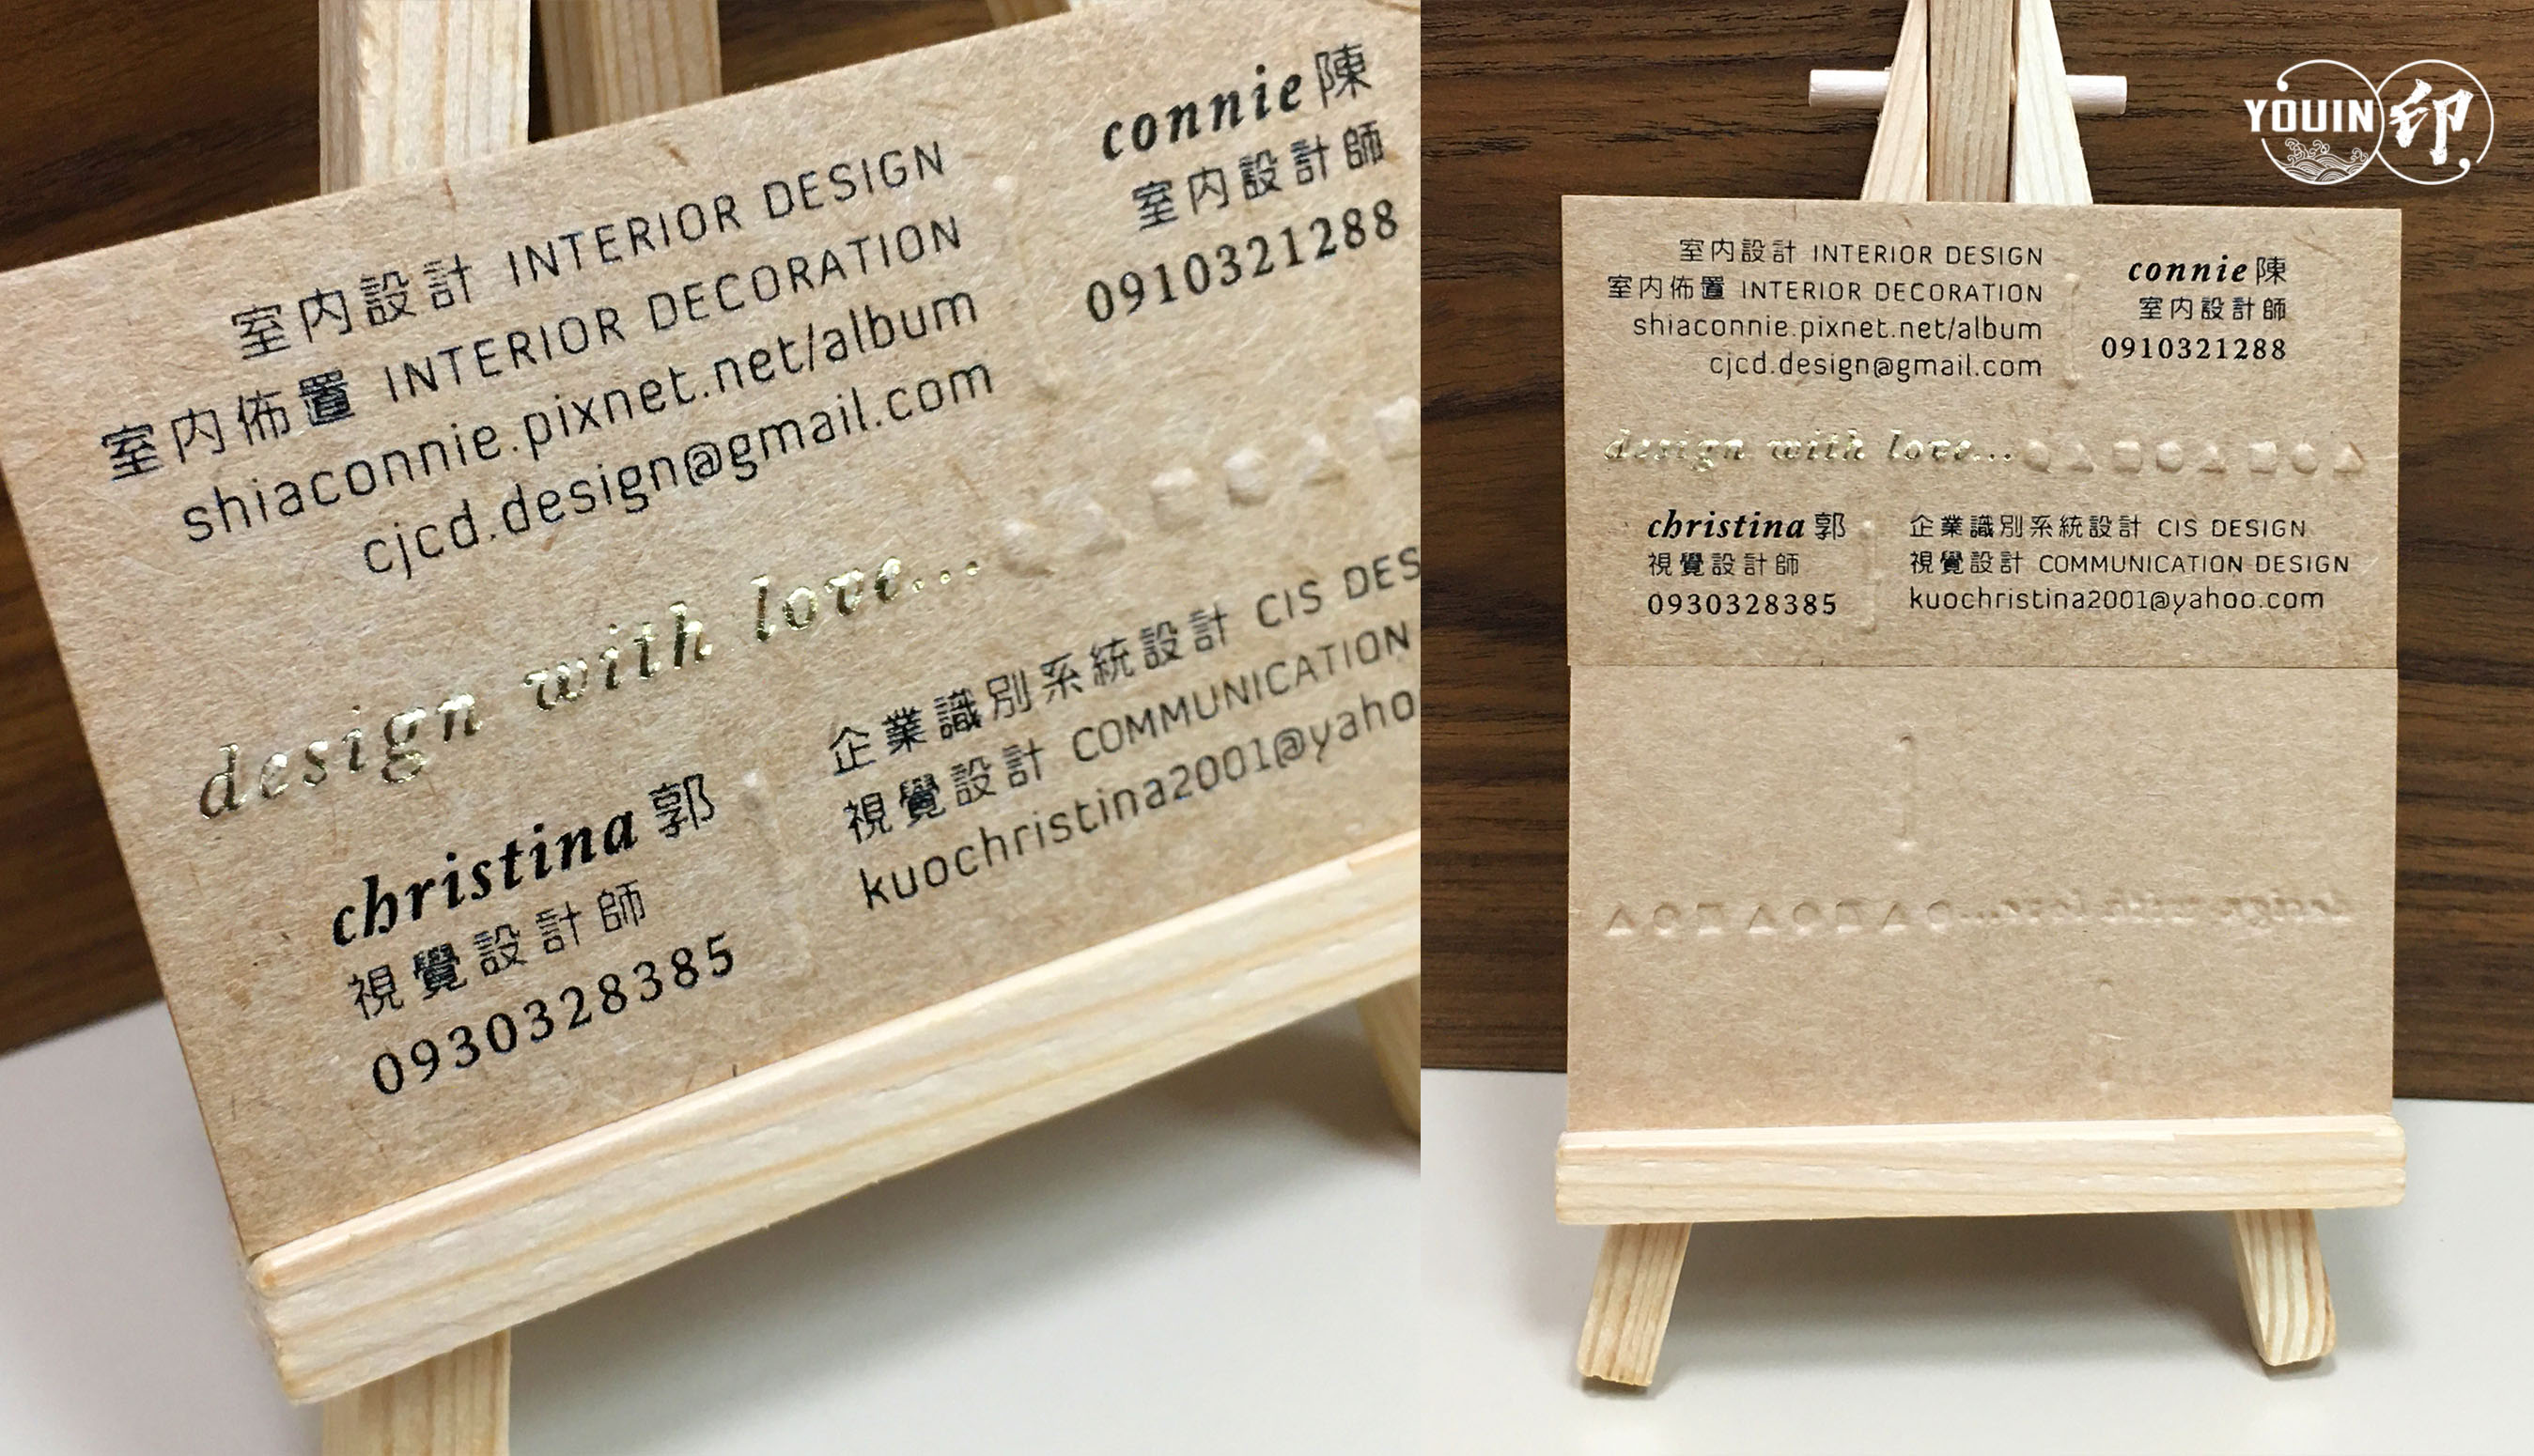 室內設計 INTERIOR DESIGN
室內佈置 INTERIOR DECORATION
shiaconnie.pixnet.net/album
cjcd.design@gmail.com
connie陳
室內設計師
0910321288
design with love...
christina郭
視覺設計師
0930328385
企業識別系統設計 CIS DES
視覺設計 COMMUNICATION
kuochristina2001@yaho
YOUIN印
室內設計 INTERIOR DESIGN
室內佈置 INTERIOR DECORATION
shiaconnie.pixnet.net/album
cjcd.design@gmail.com
connie陳
室內設計師
0910321288
design with love...
christina郭
視覺設計師
0930328385
企業識別系統設計 CIS DESIGN
視覺設計 COMMUNICATION DESIGN
kuochristina2001@yahoo.com
design with love...